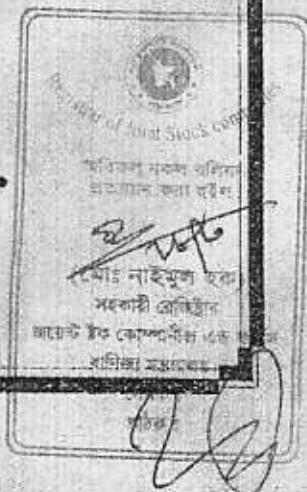 Registrar of Joint Stock Companies
অবিকল নকল বলিয়া
প্রত্যয়ন করা হইল
(মোঃ নাইমুল হক)
সহকারী রেজিষ্ট্রার
জয়েন্ট ষ্টক কোম্পানীজ এন্ড
বাণিজ্য মন্ত্রণালয়